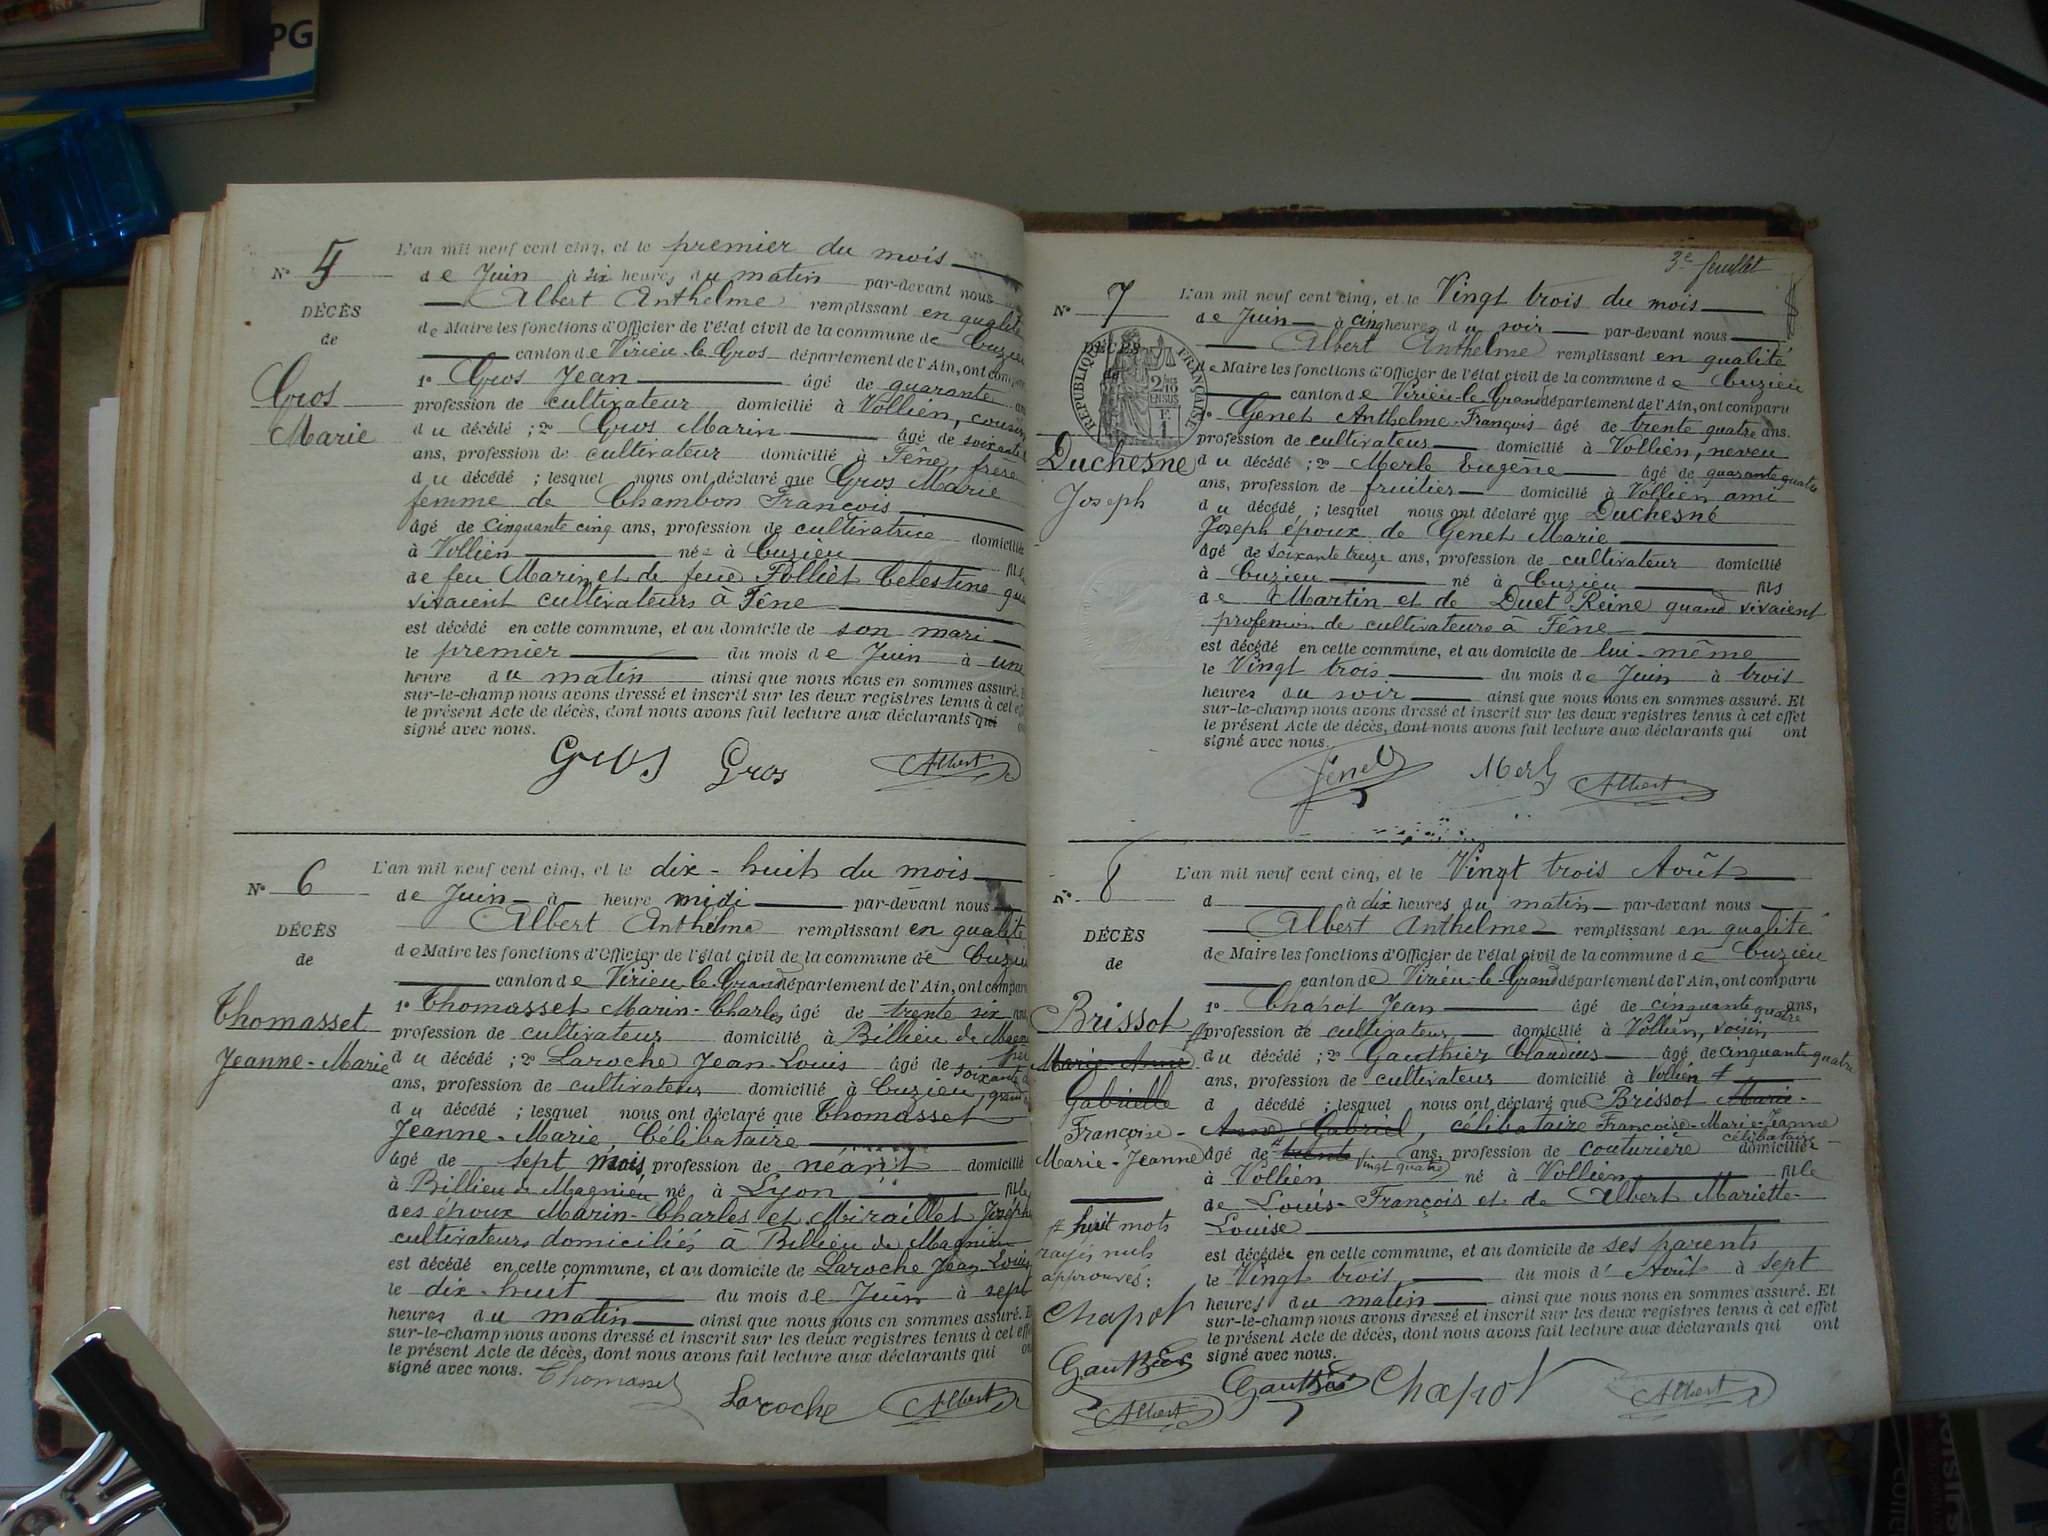 PG
N° 5
DÉCÈS
de
Gros
Marie
L'an mil neuf cent cinq, et le premier du mois
de Juin à six heures du matin par-devant nous
Albert Anthelme remplissant en qualité
de Maire les fonctions d'Officier de l'état civil de la commune de Cuzieu
canton de Virieu-le-Gros département de l'Ain, ont comparu
1° Gros Jean âgé de quarante ans
profession de cultivateur domicilié à Vollien, cousin
du décédé ; 2° Gros Marin âgé de soixante
ans, profession de cultivateur domicilié à Fêne, frère
du décédé ; lesquel nous ont déclaré que Gros Marie
femme de Chambon François
âgé de cinquante cinq ans, profession de cultivatrice domicilié
à Vollien née à Cuzieu fille
de feu Marin et de feue Folliet Celestine qui
vivaient cultivateurs à Fêne
est décédé en cette commune, et au domicile de son mari
le premier du mois de Juin à une
heure du matin ainsi que nous nous en sommes assuré. Et
sur-le-champ nous avons dressé et inscrit sur les deux registres tenus à cet effet
le présent Acte de décès, dont nous avons fait lecture aux déclarants qui ont
signé avec nous.
Gros Gros Albert
N° 6
DÉCÈS
de
Thomasset
Jeanne-Marie
L'an mil neuf cent cinq, et le dix-huit du mois
de Juin à heure midi par-devant nous
Albert Anthelme remplissant en qualité
de Maire les fonctions d'Officier de l'état civil de la commune de Cuzieu
canton de Virieu-le-Grand département de l'Ain, ont comparu
1° Thomasset Marin-Charles âgé de trente six ans
profession de cultivateur domicilié à Billieu de Magnieu père
du décédé ; 2° Laroche Jean-Louis âgé de soixante
ans, profession de cultivateur domicilié à Cuzieu, grand
du décédé ; lesquel nous ont déclaré que Thomasset
Jeanne-Marie, Célibataire
âgé de sept mois, profession de néant domicilié
à Billieu de Magnieu né à Lyon fille
des époux Marin-Charles et Miraillet Josèphe
cultivateurs domiciliés à Billieu de Magnieu
est décédé en cette commune, et au domicile de Laroche Jean-Louis
le dix-huit du mois de Juin à sept
heures du matin ainsi que nous nous en sommes assuré. Et
sur-le-champ nous avons dressé et inscrit sur les deux registres tenus à cet effet
le présent Acte de décès, dont nous avons fait lecture aux déclarants qui ont
signé avec nous. Thomasset
Laroche Albert
3e feuillet
N° 7
DÉCÈS
de
RÉPUBLIQUE FRANÇAISE
Duchesne
Joseph
L'an mil neuf cent cinq, et le Vingt trois du mois
de Juin à cinq heures du soir par-devant nous
Albert Anthelme remplissant en qualité
de Maire les fonctions d'Officier de l'état civil de la commune de Cuzieu
canton de Virieu-le-Grand département de l'Ain, ont comparu
1° Genet Anthelme-François âgé de trente quatre ans.
profession de cultivateur domicilié à Vollien, neveu
du décédé ; 2° Merle Eugène âgé de quarante quatre
ans, profession de fruitier domicilié à Vollien ami
du décédé ; lesquel nous ont déclaré que Duchesne
Joseph époux de Genet Marie
âgé de soixante treize ans, profession de cultivateur domicilié
à Cuzieu né à Cuzieu fils
de Martin et de Duet Reine quand vivaient
profession de cultivateurs à Fêne
est décédé en cette commune, et au domicile de lui-même
le Vingt trois du mois de Juin à trois
heures du soir ainsi que nous nous en sommes assuré. Et
sur-le-champ nous avons dressé et inscrit sur les deux registres tenus à cet effet
le présent Acte de décès, dont nous avons fait lecture aux déclarants qui ont
signé avec nous.
Genet Merle Albert
N° 8
DÉCÈS
de
Brissot
Marie-Anne
Gabrielle
Françoise-
Marie-Jeanne
# huit mots
rayés nuls
approuvés :
Chapot
Gauthier
Albert
L'an mil neuf cent cinq, et le Vingt trois Août
d à dix heures du matin par-devant nous
Albert Anthelme remplissant en qualité
de Maire les fonctions d'Officier de l'état civil de la commune de Cuzieu
canton de Virieu-le-Grand département de l'Ain, ont comparu
1° Chapot Jean âgé de cinquante quatre ans,
profession de cultivateur domicilié à Vollien, voisin
du décédé ; 2° Gauthier Claudius âgé de cinquante quatre
ans, profession de cultivateur domicilié à Vollien #
d décédé ; lesquel nous ont déclaré que Brissot Marie-
Anne Gabriel, célibataire Françoise-Marie-Jeanne célibataire
âgé de trente Vingt quatre ans, profession de couturière domiciliée
à Vollien né à Vollien fille
de Louis-François et de Albert Mariette-
Louise
est décédée en cette commune, et au domicile de ses parents
le Vingt trois du mois d'Août à sept
heures du matin ainsi que nous nous en sommes assuré. Et
sur-le-champ nous avons dressé et inscrit sur les deux registres tenus à cet effet
le présent Acte de décès, dont nous avons fait lecture aux déclarants qui ont
signé avec nous.
Gauthier Chapot Albert